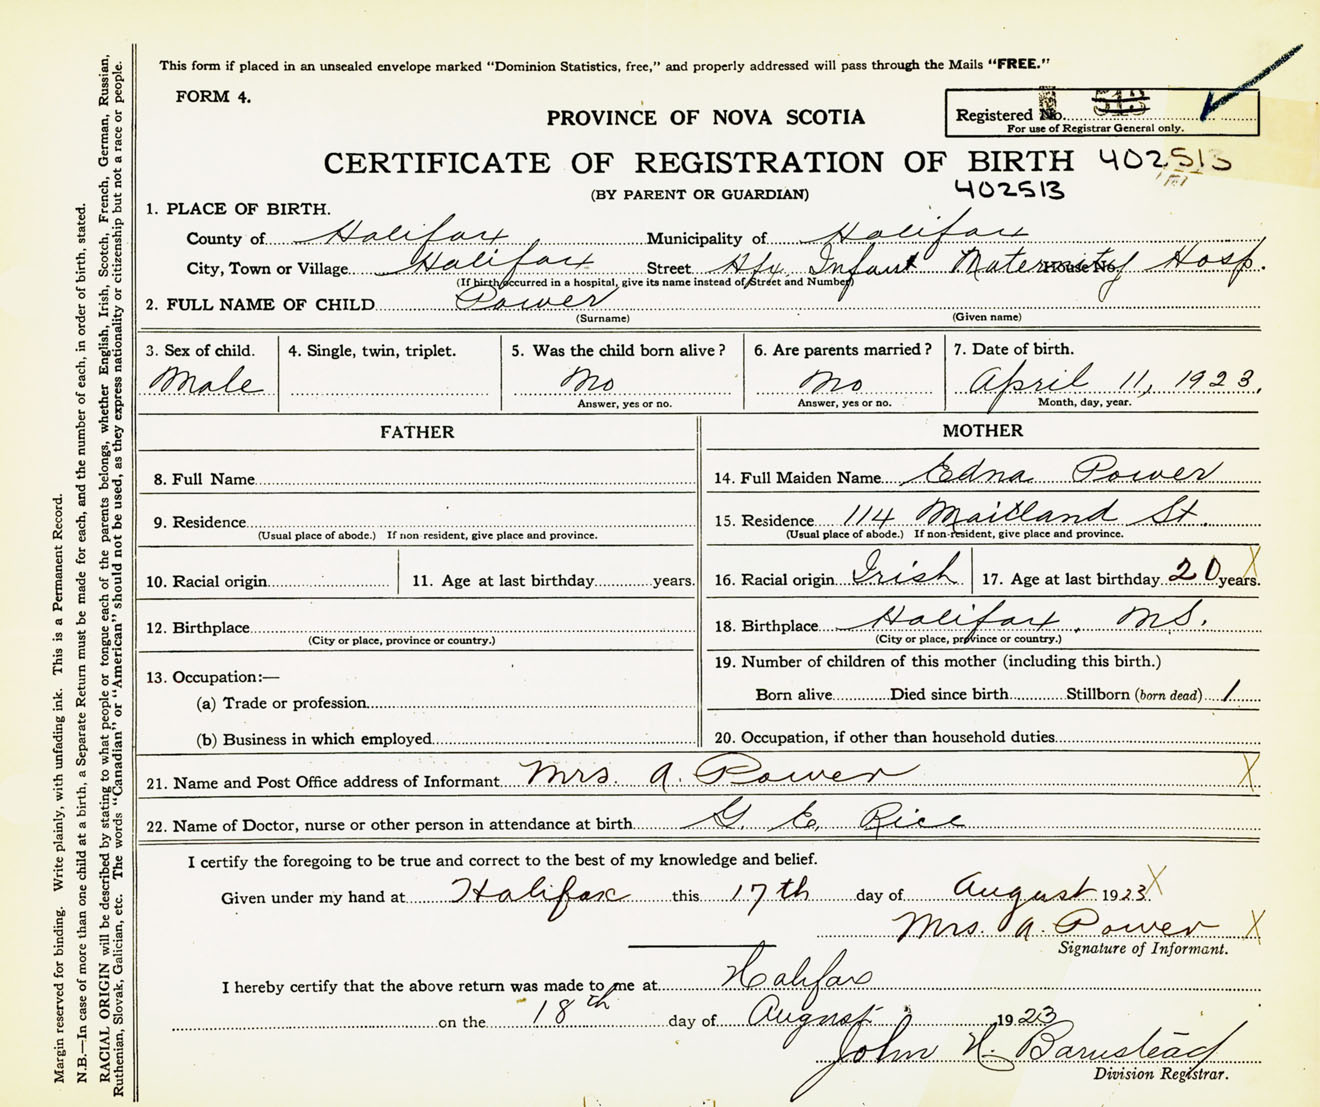 This form if placed in an unsealed envelope marked "Dominion Statistics, free," and properly addressed will pass through the Mails "FREE."
FORM 4.
PROVINCE OF NOVA SCOTIA
Registered No. 513
For use of Registrar General only.
CERTIFICATE OF REGISTRATION OF BIRTH 402513
(BY PARENT OR GUARDIAN) 402513
1. PLACE OF BIRTH.
County of Halifax Municipality of Halifax
City, Town or Village Halifax Street Hfx. Infant Maternity Hosp. House No.
(If birth occurred in a hospital, give its name instead of Street and Number)
2. FULL NAME OF CHILD Power
(Surname) (Given name)
3. Sex of child. 4. Single, twin, triplet. 5. Was the child born alive? 6. Are parents married? 7. Date of birth.
Male No No April 11, 1923.
Answer, yes or no. Answer, yes or no. Month, day, year.
FATHER MOTHER
8. Full Name 14. Full Maiden Name Edna Power
9. Residence 15. Residence 114 Maitland St.
(Usual place of abode.) If non-resident, give place and province. (Usual place of abode.) If non-resident, give place and province.
10. Racial origin 11. Age at last birthday years. 16. Racial origin Irish 17. Age at last birthday 20 years. X
12. Birthplace 18. Birthplace Halifax, NS.
(City or place, province or country.) (City or place, province or country.)
13. Occupation:— 19. Number of children of this mother (including this birth.)
(a) Trade or profession Born alive Died since birth Stillborn (born dead) 1
(b) Business in which employed 20. Occupation, if other than household duties
21. Name and Post Office address of Informant Mrs. A. Power X
22. Name of Doctor, nurse or other person in attendance at birth G. E. Rice
I certify the foregoing to be true and correct to the best of my knowledge and belief.
Given under my hand at Halifax this 17th day of August 1923 X
Mrs. A. Power X
Signature of Informant.
I hereby certify that the above return was made to me at Halifax
on the 18th day of August 1923
John H. Barnstead
Division Registrar.
Margin reserved for binding. Write plainly, with unfading ink. This is a Permanent Record.
N.B.—In case of more than one child at a birth, a Separate Return must be made for each, and the number of each, in order of birth, stated.
RACIAL ORIGIN will be described by stating to what people or tongue each of the parents belongs, whether English, Irish, Scotch, French, German, Russian,
Ruthenian, Slovak, Galician, etc. The words "Canadian" or "American" should not be used, as they express nationality or citizenship but not a race or people.